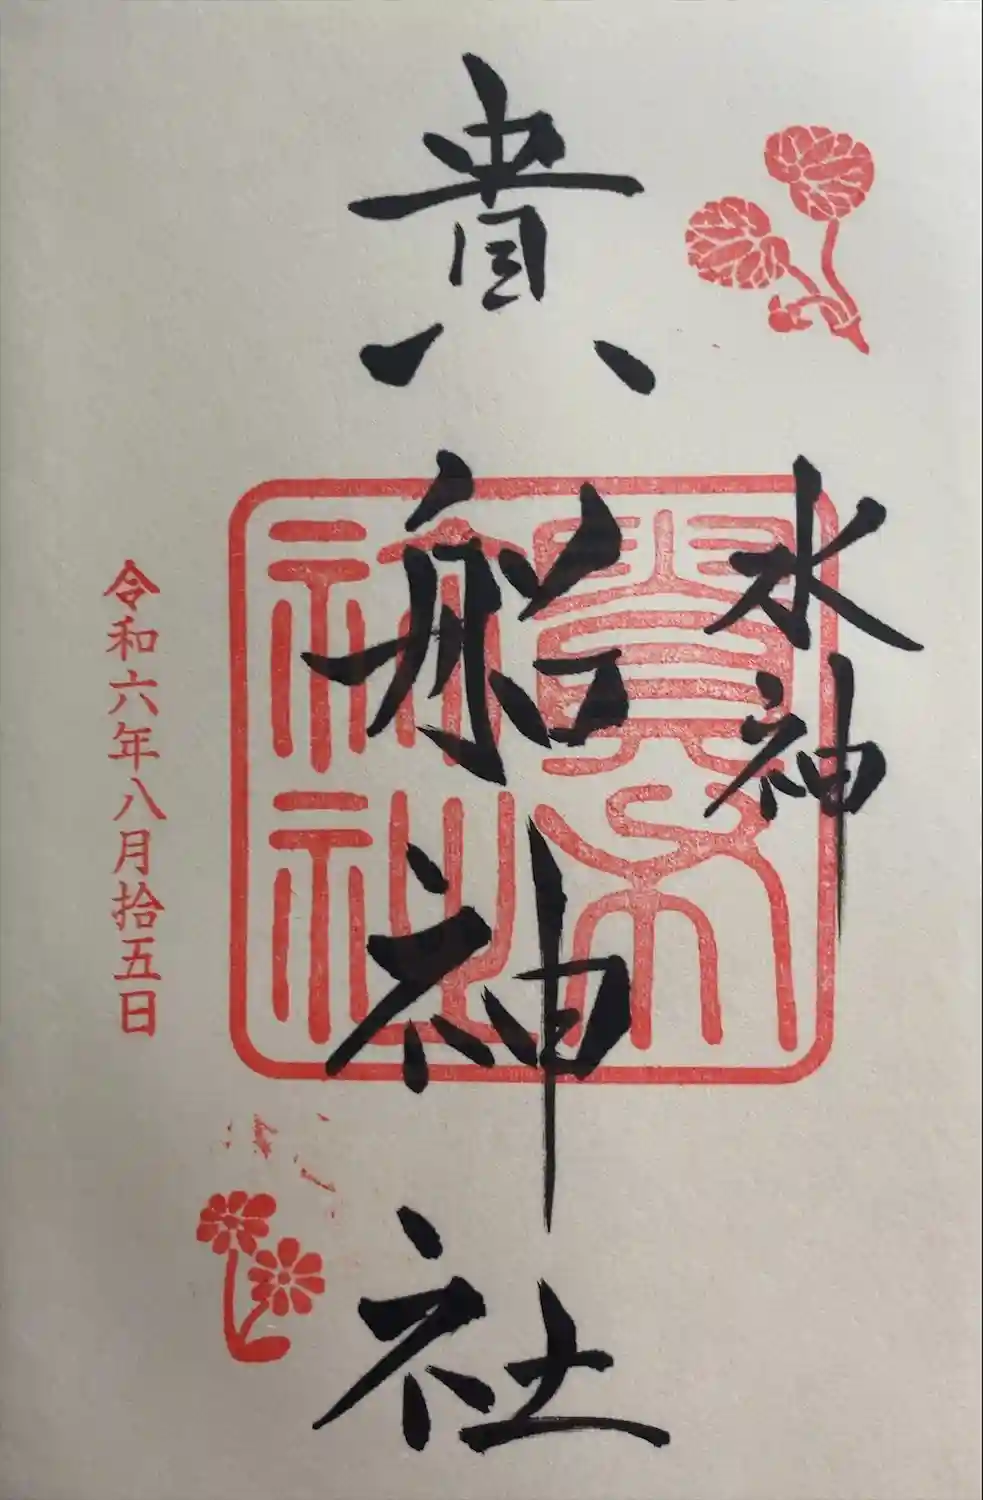 水神
貴船神社
貴舟神社
令和六年八月拾五日